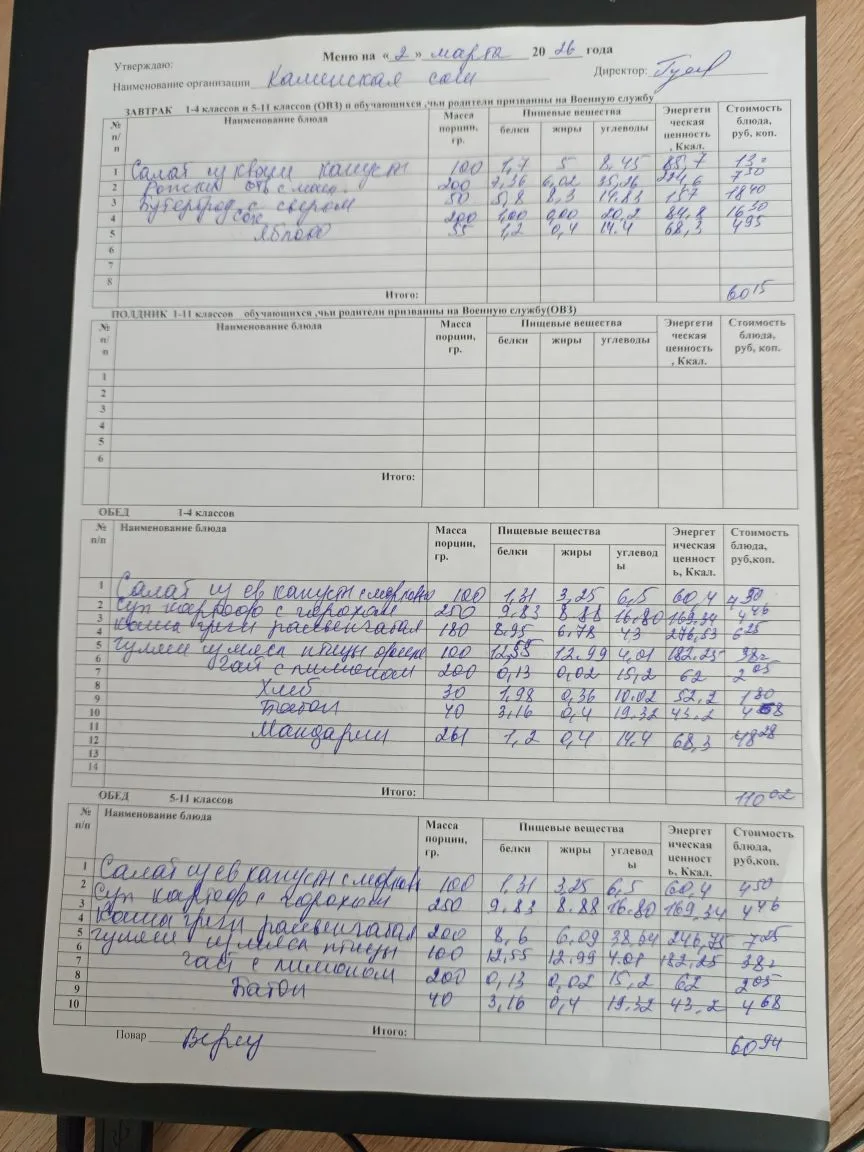 Меню на « 2 » марта 20 26 года
Утверждаю:
Наименование организации Каменская сош Директор:
ЗАВТРАК 1-4 классов и 5-11 классов (ОВЗ) и обучающихся ,чьи родители призванны на Военную службу
№ п/п Наименование блюда Масса порции, гр. Пищевые вещества Энергетическая ценность, Ккал. Стоимость блюда, руб, коп.
белки жиры углеводы
1 Салат из квош капусты 100 1,7 5 8,45 85,7 13=
2 200 7,36 6,02 35,26 224,6 7 30
3 Бутерброд с сыром 50 5,8 8,3 14,83 157 18 40
4 сок 200 1,00 0,00 20,2 84,8 16 30
5 Яблоко 55 1,2 0,4 14.4 68,3 4 95
6
7
8
Итого: 60 15
ПОЛДНИК 1-11 классов обучающихся ,чьи родители призванны на Военную службу(ОВЗ)
№ п/п Наименование блюда Масса порции, гр. Пищевые вещества Энергетическая ценность, Ккал. Стоимость блюда, руб, коп.
белки жиры углеводы
1
2
3
4
5
6
Итого:
ОБЕД 1-4 классов
№ п/п Наименование блюда Масса порции, гр. Пищевые вещества Энергетическая ценность, Ккал. Стоимость блюда, руб,коп.
белки жиры углеводы
1 Салат из св капусты с морковью 100 1,31 3,25 6,5 60,4 4 50
2 Суп картоф с горохом 250 9.83 8.88 16.80 169,34 4 46
3 каша греч рассыпчатая 180 8,95 6.78 43 276,53 6 25
4 гуляш из мяса птицы 100 12,55 12.99 4.01 182.25 38=
5
6 Чай с лимоном 200 0,13 0,02 15,2 62 2 05
7
8 Хлеб 30 1,98 0,36 10.02 52,2 1 80
9 Батон 40 3,16 0,4 19.32 43.2 4 68
10
11 Мандарин 261 1,2 0,4 14.4 68,3 48 28
12
13
14
Итого: 110 02
ОБЕД 5-11 классов
№ п/п Наименование блюда Масса порции, гр. Пищевые вещества Энергетическая ценность, Ккал. Стоимость блюда, руб,коп.
белки жиры углеводы
1 Салат из св капусты с морковью 100 1,31 3,25 6,5 60,4 4 50
2 Суп картоф с горохом 250 9.83 8.88 16.80 169,34 4 46
3
4 Каша греч рассыпчатая 200 8,6 6.09 38,64 246,75 7 25
5 гуляш из мяса птицы 100 12,55 12.99 4.01 182.25 38=
6
7 Чай с лимоном 200 0,13 0,02 15,2 62 2 05
8 Батон 40 3,16 0,4 19.32 43.2 4 68
9
10
Итого: 60 94
Повар